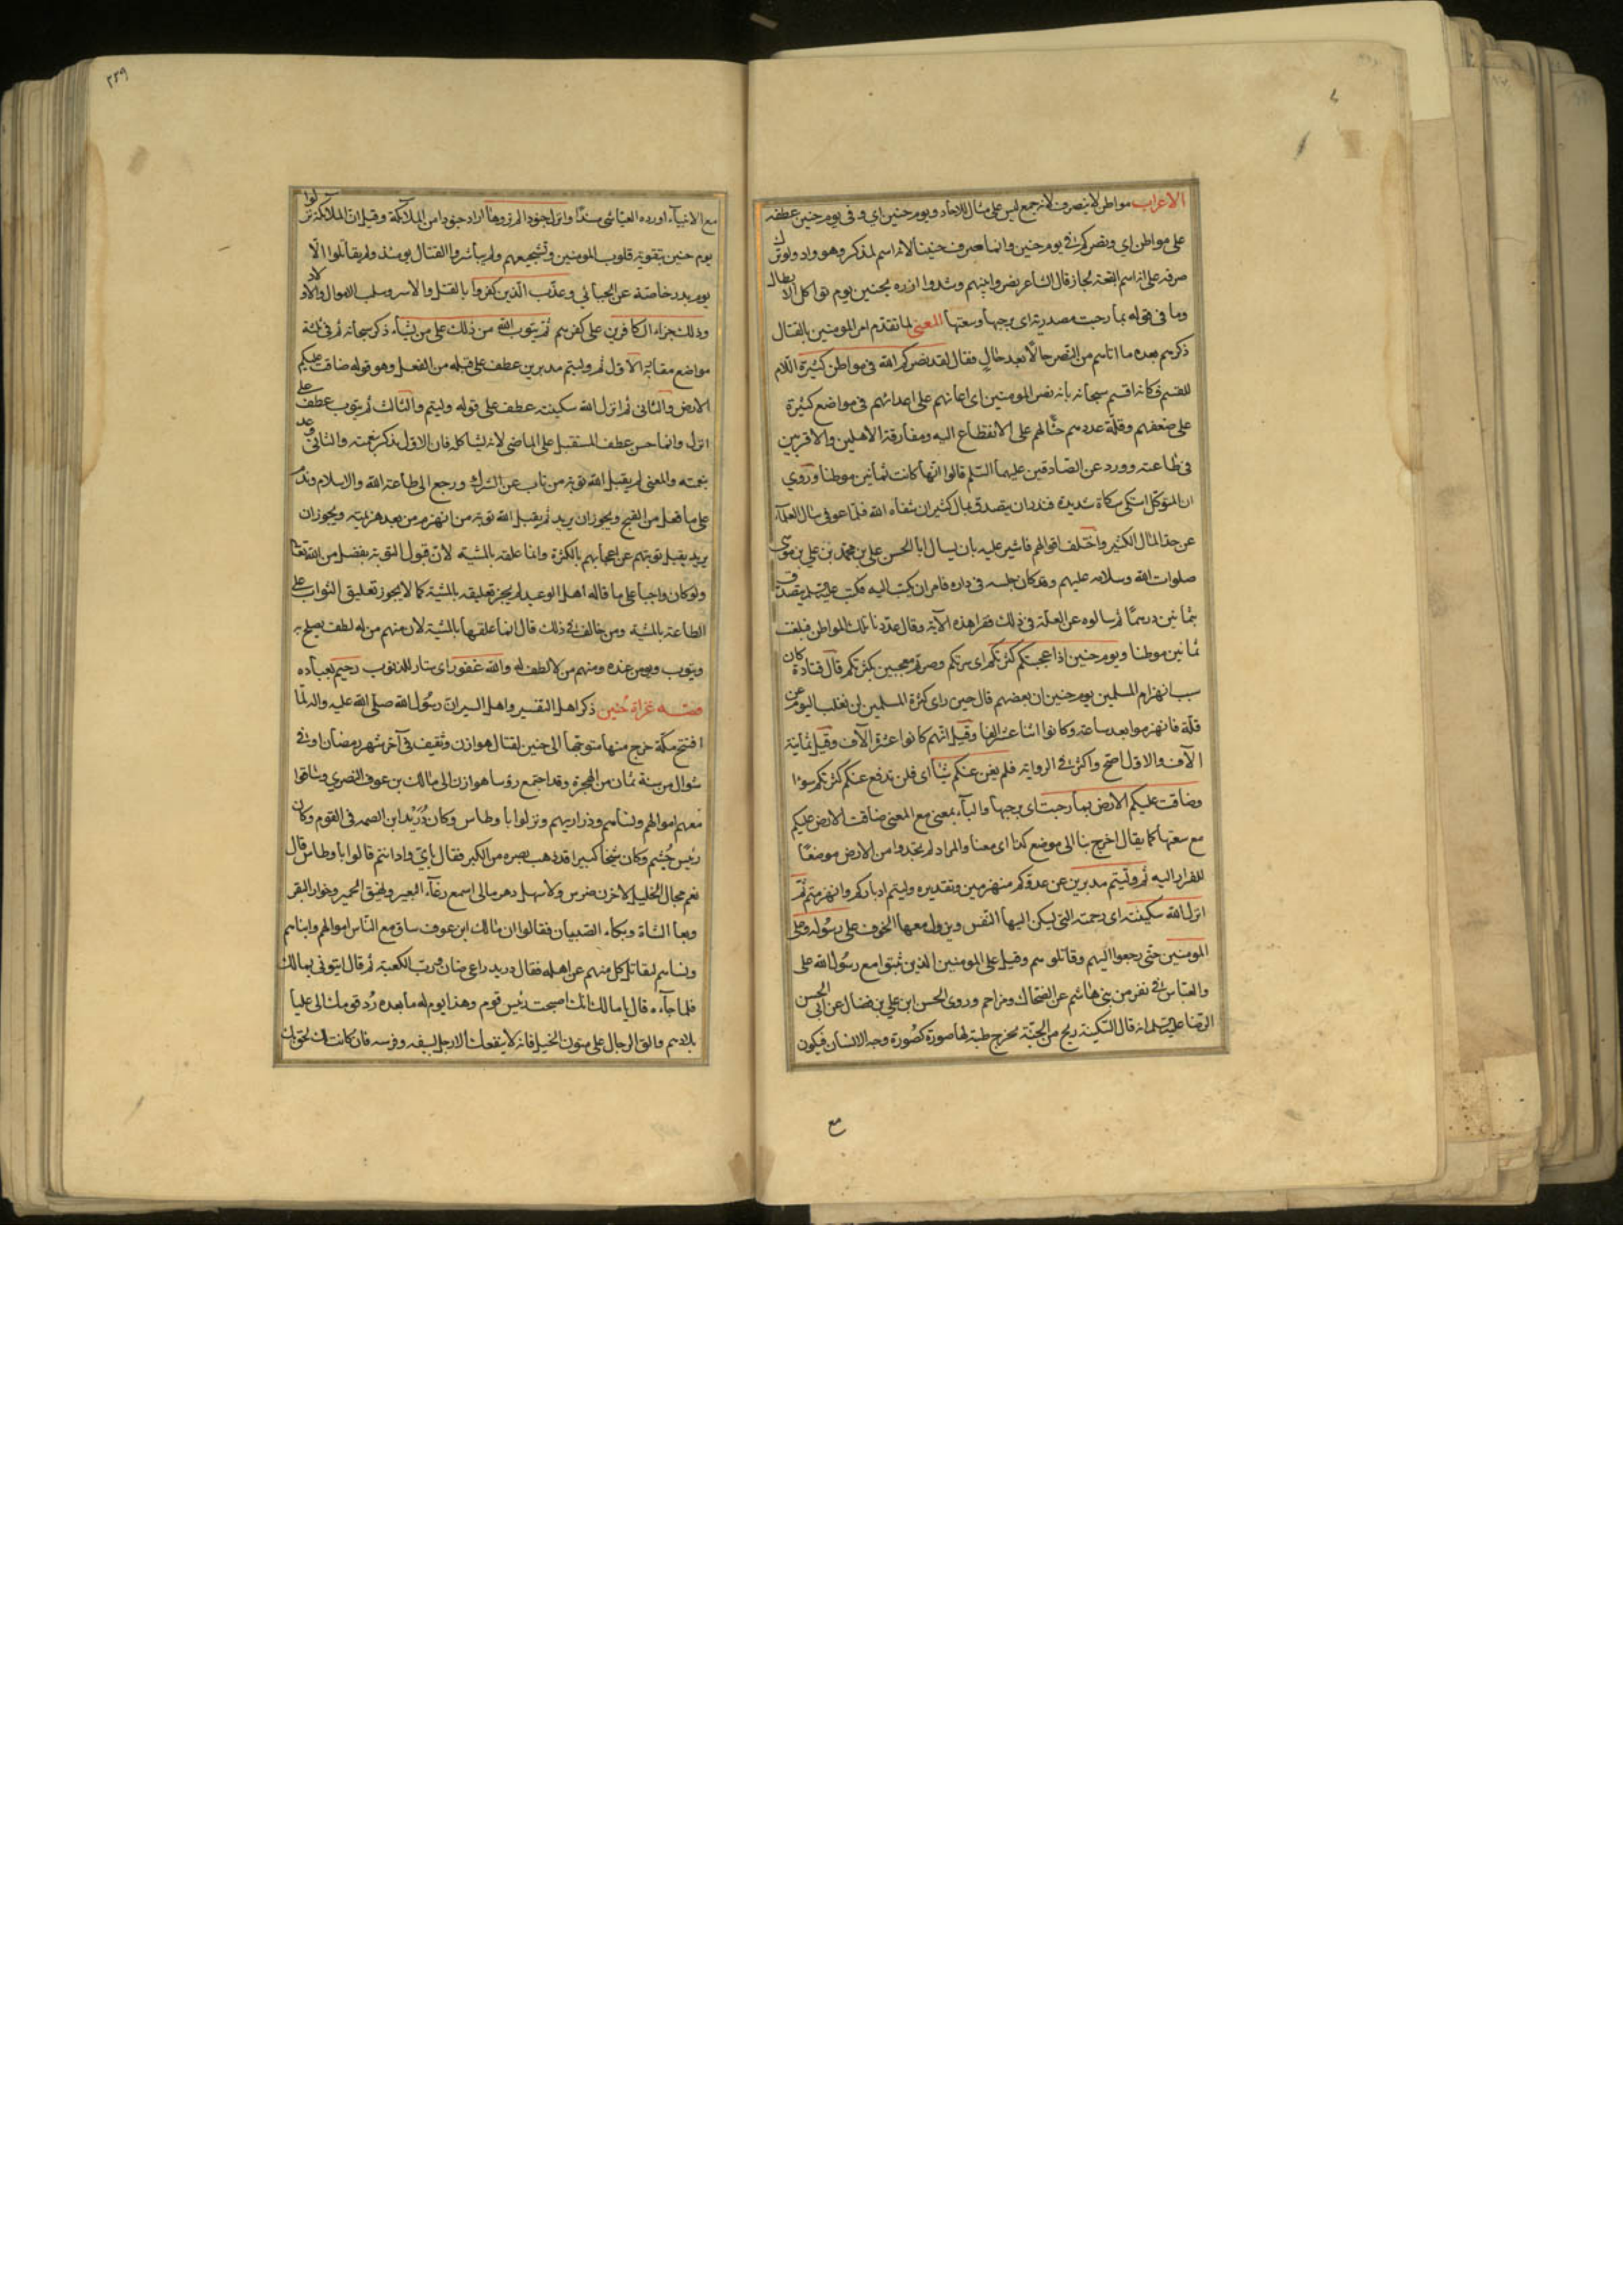 الاعراب مواطن لا ينصرف لانه جمع ليس على مثال الاحاد ويوم حنين اي وفي يوم حنين عطفه
على مواطن اي ونصركم في يوم حنين وانما صرف حنينا لانه اسم لمذكر وهو واد ولو ترك
صرفه على انه اسم البقعة لجاز قال الشاعر نصروا نبيهم وشدوا ازره بحنين يوم تواكل الابطال
وما في قوله بما رحبت مصدرية اى برحبها وسعتها المعنى لما تقدم امر المومنين بالقتال
ذكرهم بعده ما اتاهم من النصر حالا بعد حال فقال لقد نصركم الله في مواطن كثيرة اللام
للقسم فكانه اقسم سبحانه بانه نصر المومنين اى اعانهم على اعدائهم في مواضع كثيرة
على ضعفهم وقلة عددهم حثا لهم على الانقطاع اليه ومفارقة الاهلين والاقربين
في طاعته وورد عن الصادقين عليهما السلم قالوا انها كانت ثمانين موطنا وروي
ان المتوكل اشتكى شكاة شديدة فنذر ان يتصدق بمال كثير ان شفاه الله فلما عوفي سال العلمآء
عن حد المال الكثير واختلف اقوالهم فاشير عليه بان يسال ابا الحسن على بن محمد بن علي بن موسى
صلوات الله وسلامه عليهم وقد كان حبسه في داره فامر ان يكتب اليه فكتب عليه السلم يتصدق
بثمانين درهما ثم سالوه عن العلة في ذلك فقرا هذه الآية وقال عددنا تلك المواطن فبلغت
ثمانين موطنا ويوم حنين اذ اعجبتكم كثرتكم اى سرتكم وصرتم معجبين بكثرتكم قال قتادة كان
سبب انهزام المسلمين يوم حنين ان بعضهم قال حين راى كثرة المسلمين لن نغلب اليوم عن
قلة فانهزموا بعد ساعة وكانوا اثنا عشر الفا وقيل انهم كانوا عشرة الآف وقيل ثمانية
الآف والاول اصح واكثر في الرواية فلم يغن عنكم شيئا اى فلن تدفع عنكم كثرتكم سوءا
وضاقت عليكم الارض بما رحبت اى برحبها والبآء بمعنى مع المعنى ضاقت الارض عليكم
مع سعتها كما يقال اخرج بنا الى موضع كذا اى معنا والمراد لم تجدوا من الارض موضعا
للفرار اليه ثم وليتم مدبرين عن عدوكم منهزمين وتقديره وليتم ادباركم وانهزمتم ثم
انزل الله سكينته اى رحمته التي يسكن اليها النفس ويزول معها الخوف على رسوله وعلى
المومنين حتى رجعوا اليهم وقاتلوهم وقيل على المومنين الذين ثبتوا مع رسول الله على
والعباس في نفر من بني هاشم عن الضحاك ومزاحم وروى الحسن ابن علي بن فضال عن ابي الحسن
الرضا عليه السلم انه قال السكينة ريح من الجنة تخرج طيبة لها صورة كصورة وجه الانسان فيكون
مع
٢٣٩
مع الانبيآء اورده العياشى مسندا وانزل جنودا لم تروها اراد جنودا من الملائكة وقيل ان الملائكة نزلوا
يوم حنين بتقوية قلوب المومنين وتشجيعهم ولم يباشروا القتال يومئذ ولم يقاتلوا الا
يوم بدر خاصة عن الجبائي وعذب الذين كفروا بالقتل والاسر وسلب الاموال والاولاد
وذلك جزاء الكافرين على كفرهم ثم يتوب الله من ذلك على من يشآء ذكر سبحانه ثم في ثلثة
مواضع متقاربة الاول ثم وليتم مدبرين عطف على قبله من الفعل وهو قوله ضاقت عليكم
الارض والثاني ثم انزل الله سكينته عطف على قوله وليتم والثالث ثم يتوب عطف على
انزل وانما حسن عطف المستقبل على الماضى لانه يشاكله فان الاول تذكير بنعمته والثاني وعد
بنعمته والمعنى ثم يقبل الله توبة من تاب عن الشرك ورجع الى طاعة الله والاسلام وندم
على ما فعل من القبيح ويجوز ان يريد ثم يقبل الله توبة من انهزم من بعد هزيمته ويجوز ان
يريد يقبل توبتهم عن اعجابهم بالكثرة وانما علقه بالمشية لان قبول التوبة تفضل من الله تعالى
ولو كان واجبا على ما قاله اهل الوعيد لم يجز تعليقه بالمشية كما لا يجوز تعليق الثواب على
الطاعة بالمشية ومن خالف في ذلك قال انما علقها بالمشية لان منهم من له لطف يصلح به
ويتوب ويومن عنده ومنهم من لا لطف له والله غفور اى ستار للذنوب رحيم بعباده
قصة غزاة حنين ذكر اهل التفسير واهل السير ان رسول الله صلى الله عليه واله لما
افتتح مكة خرج منها متوجها الى حنين لقتال هوازن وثقيف في آخر شهر رمضان او في
شوال من سنة ثمان من الهجرة وقد اجتمع رؤسا هوازن الى مالك بن عوف النصري وساقوا
معهم اموالهم ونسائهم وذراريهم ونزلوا باوطاس وكان دريد ابن الصمه في القوم وكان
رئيس جشم وكان شيخا كبيرا قد ذهب بصره من الكبر فقال باي واد انتم قالوا باوطاس قال
نعم مجال الخليل لا حزن ضرس ولا سهل دهس مالى اسمع رغآء البعير ونهيق الحمير وخوار البقر
وبعا الشاة وبكاء الصبيان فقالوا ان مالك ابن عوف ساق مع الناس اموالهم وابناهم
ونساهم ليقاتل كل منهم عن اهله فقال دريد راعي ضان ورب الكعبة ثم قال ايتوني بمالك
فلما جآءه قال يا مالك انك اصبحت رئيس قوم وهذا يوم له ما بعده رد قومك الى عليا
بلادهم والق الرجال على متون الخيل فانه لا ينفعك الا رجل بسيفه وفرسه فان كانت لك لحق بك